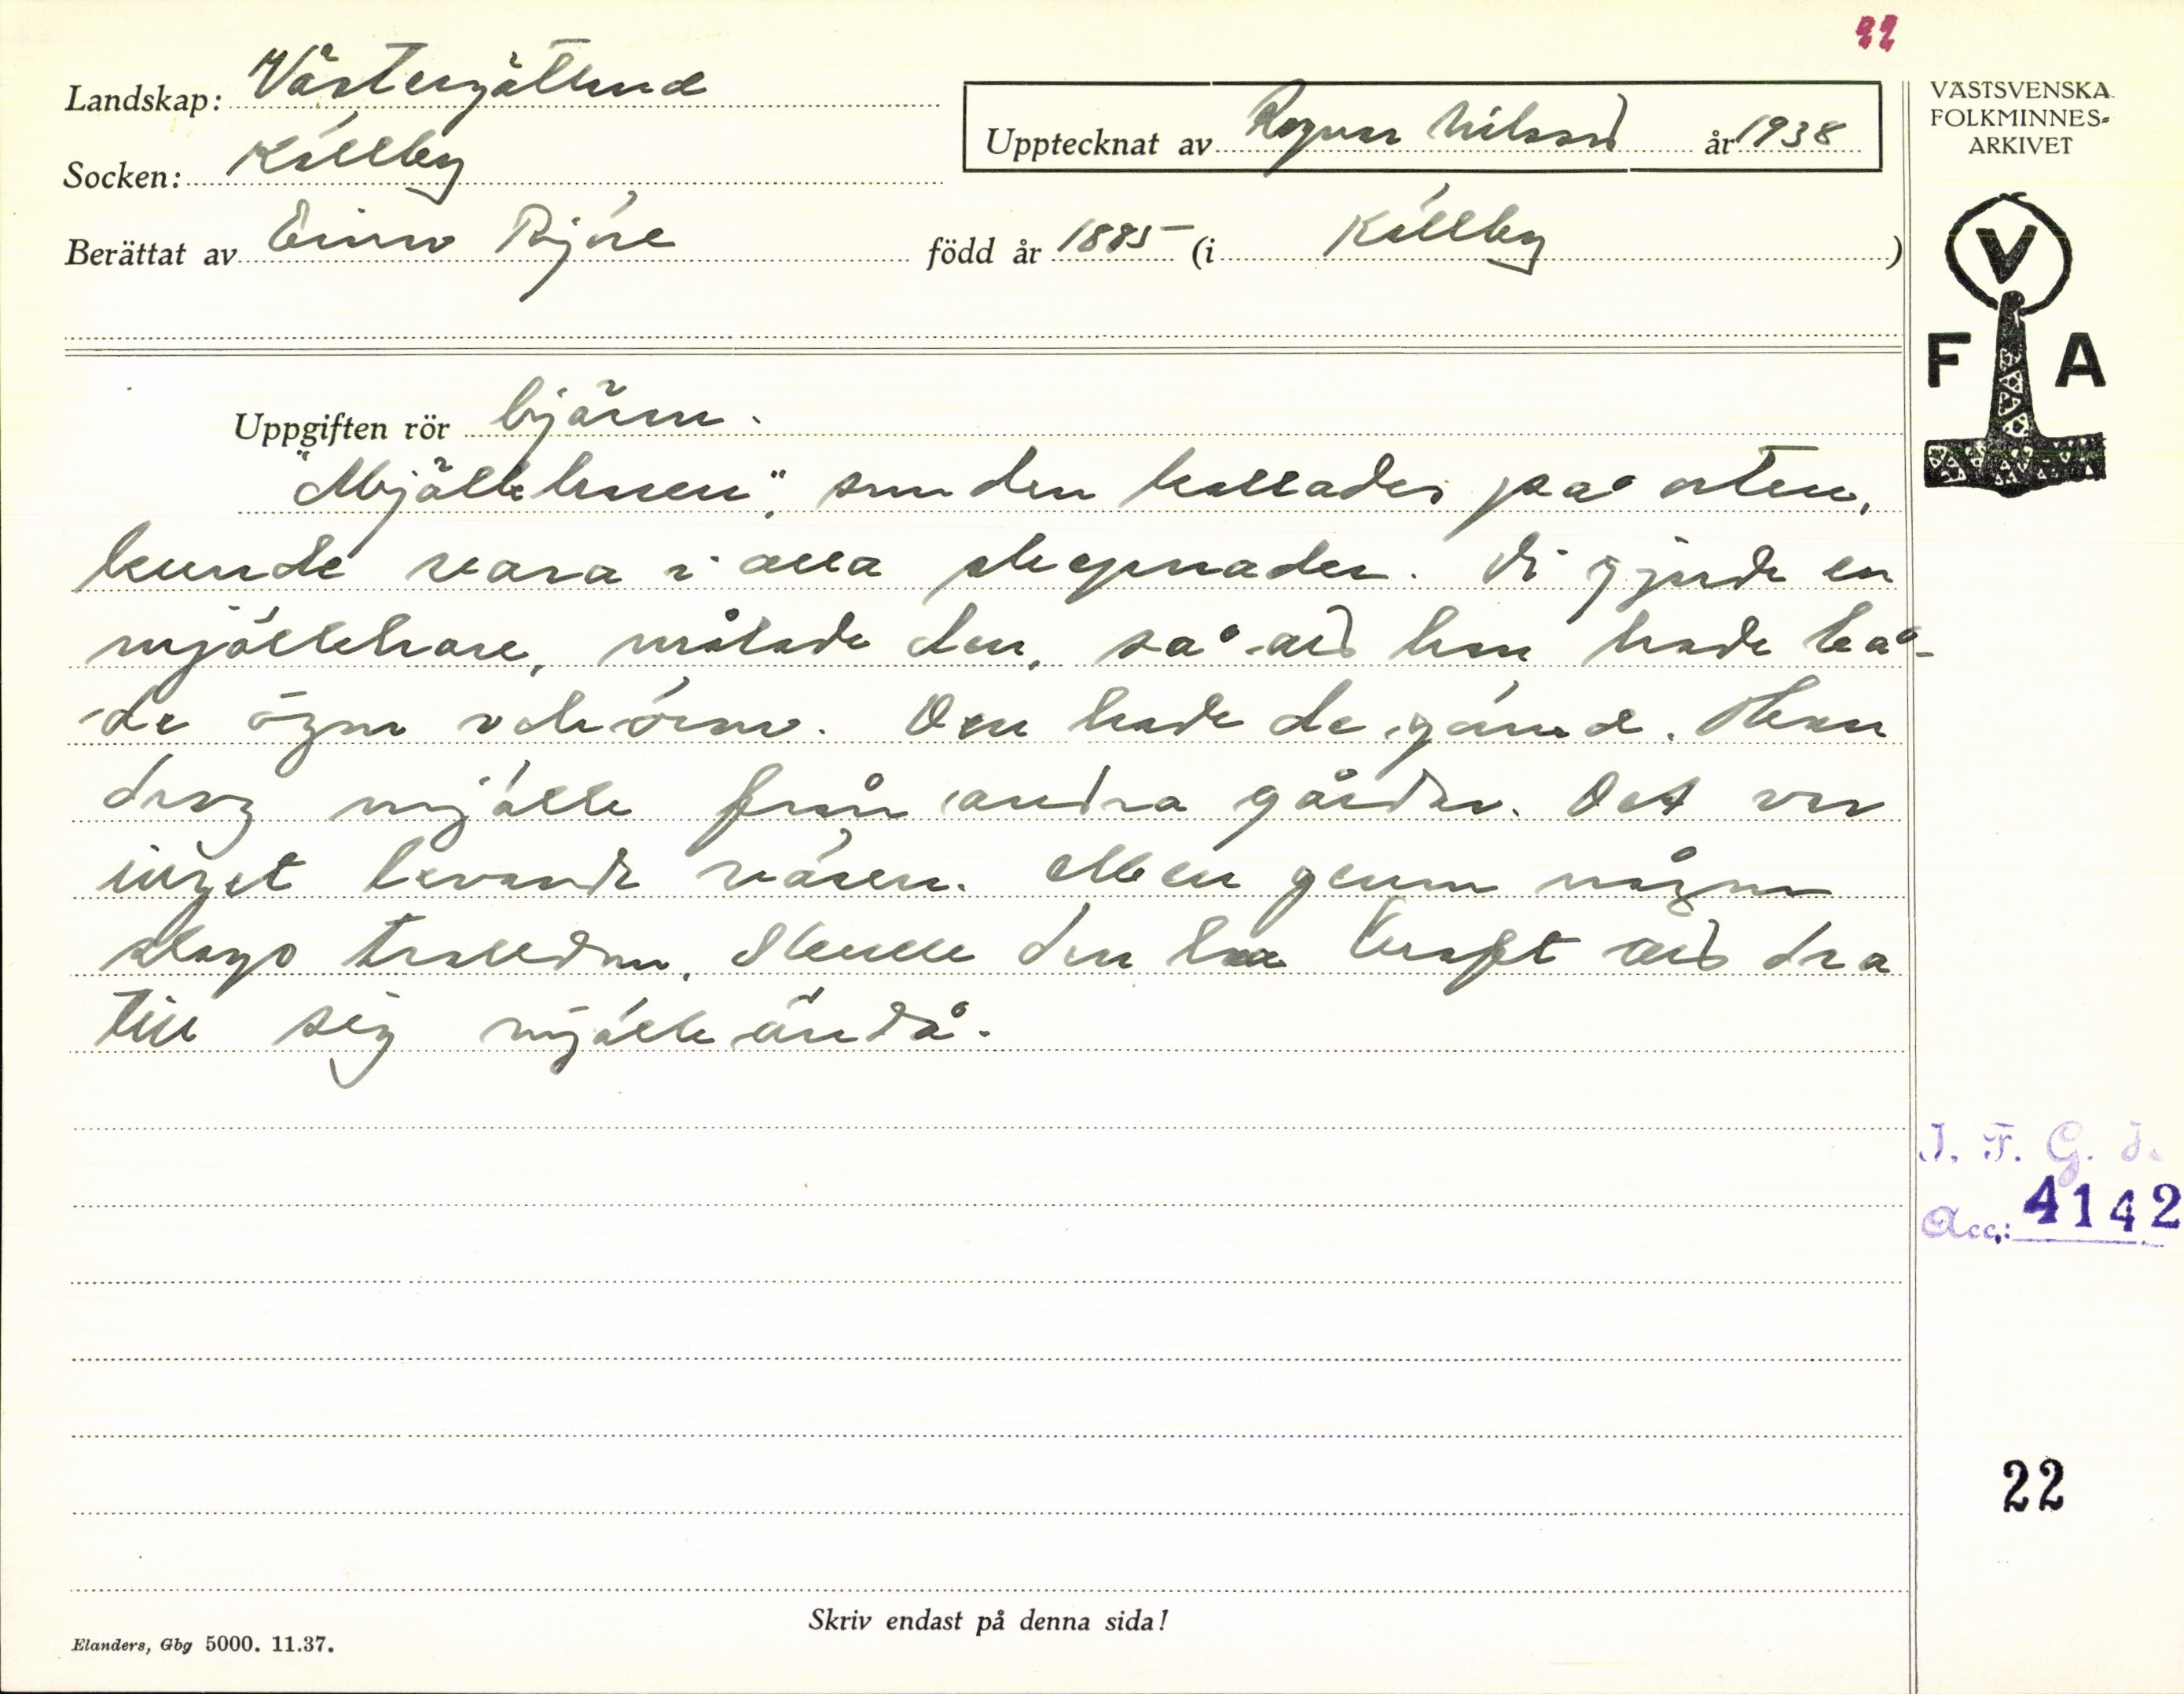 22
Landskap: Västergötland
Socken: Källby
Berättat av Einar
Upptecknat av Ragnar Nilsson år 1938
född år 1885 (i Källby)
Uppgiften rör bjäran.
"Mjölkharen", som den kallades på orten,
kunde vara i alla skepnader. Di gjorde en
mjölkhare, målade den, så att han hade bå-
de ögon o öron. Den hade de gömd. Han
drog mjölk från andra gårdar. Det var
inget levande väsen. Men genom någon
slags trolldom, skulle den ha kraft att dra
till sig mjölk ändå.
VÄSTSVENSKA
FOLKMINNES-
ARKIVET
V
F A
I. F. G. H.
Acc.: 4142
22
Skriv endast på denna sida!
Elanders, Gbg 5000. 11.37.